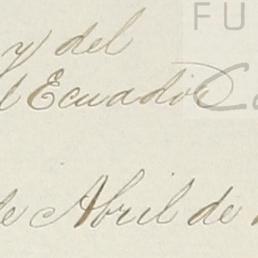 FU
y del
l Ecuador
Ca
de Abril de